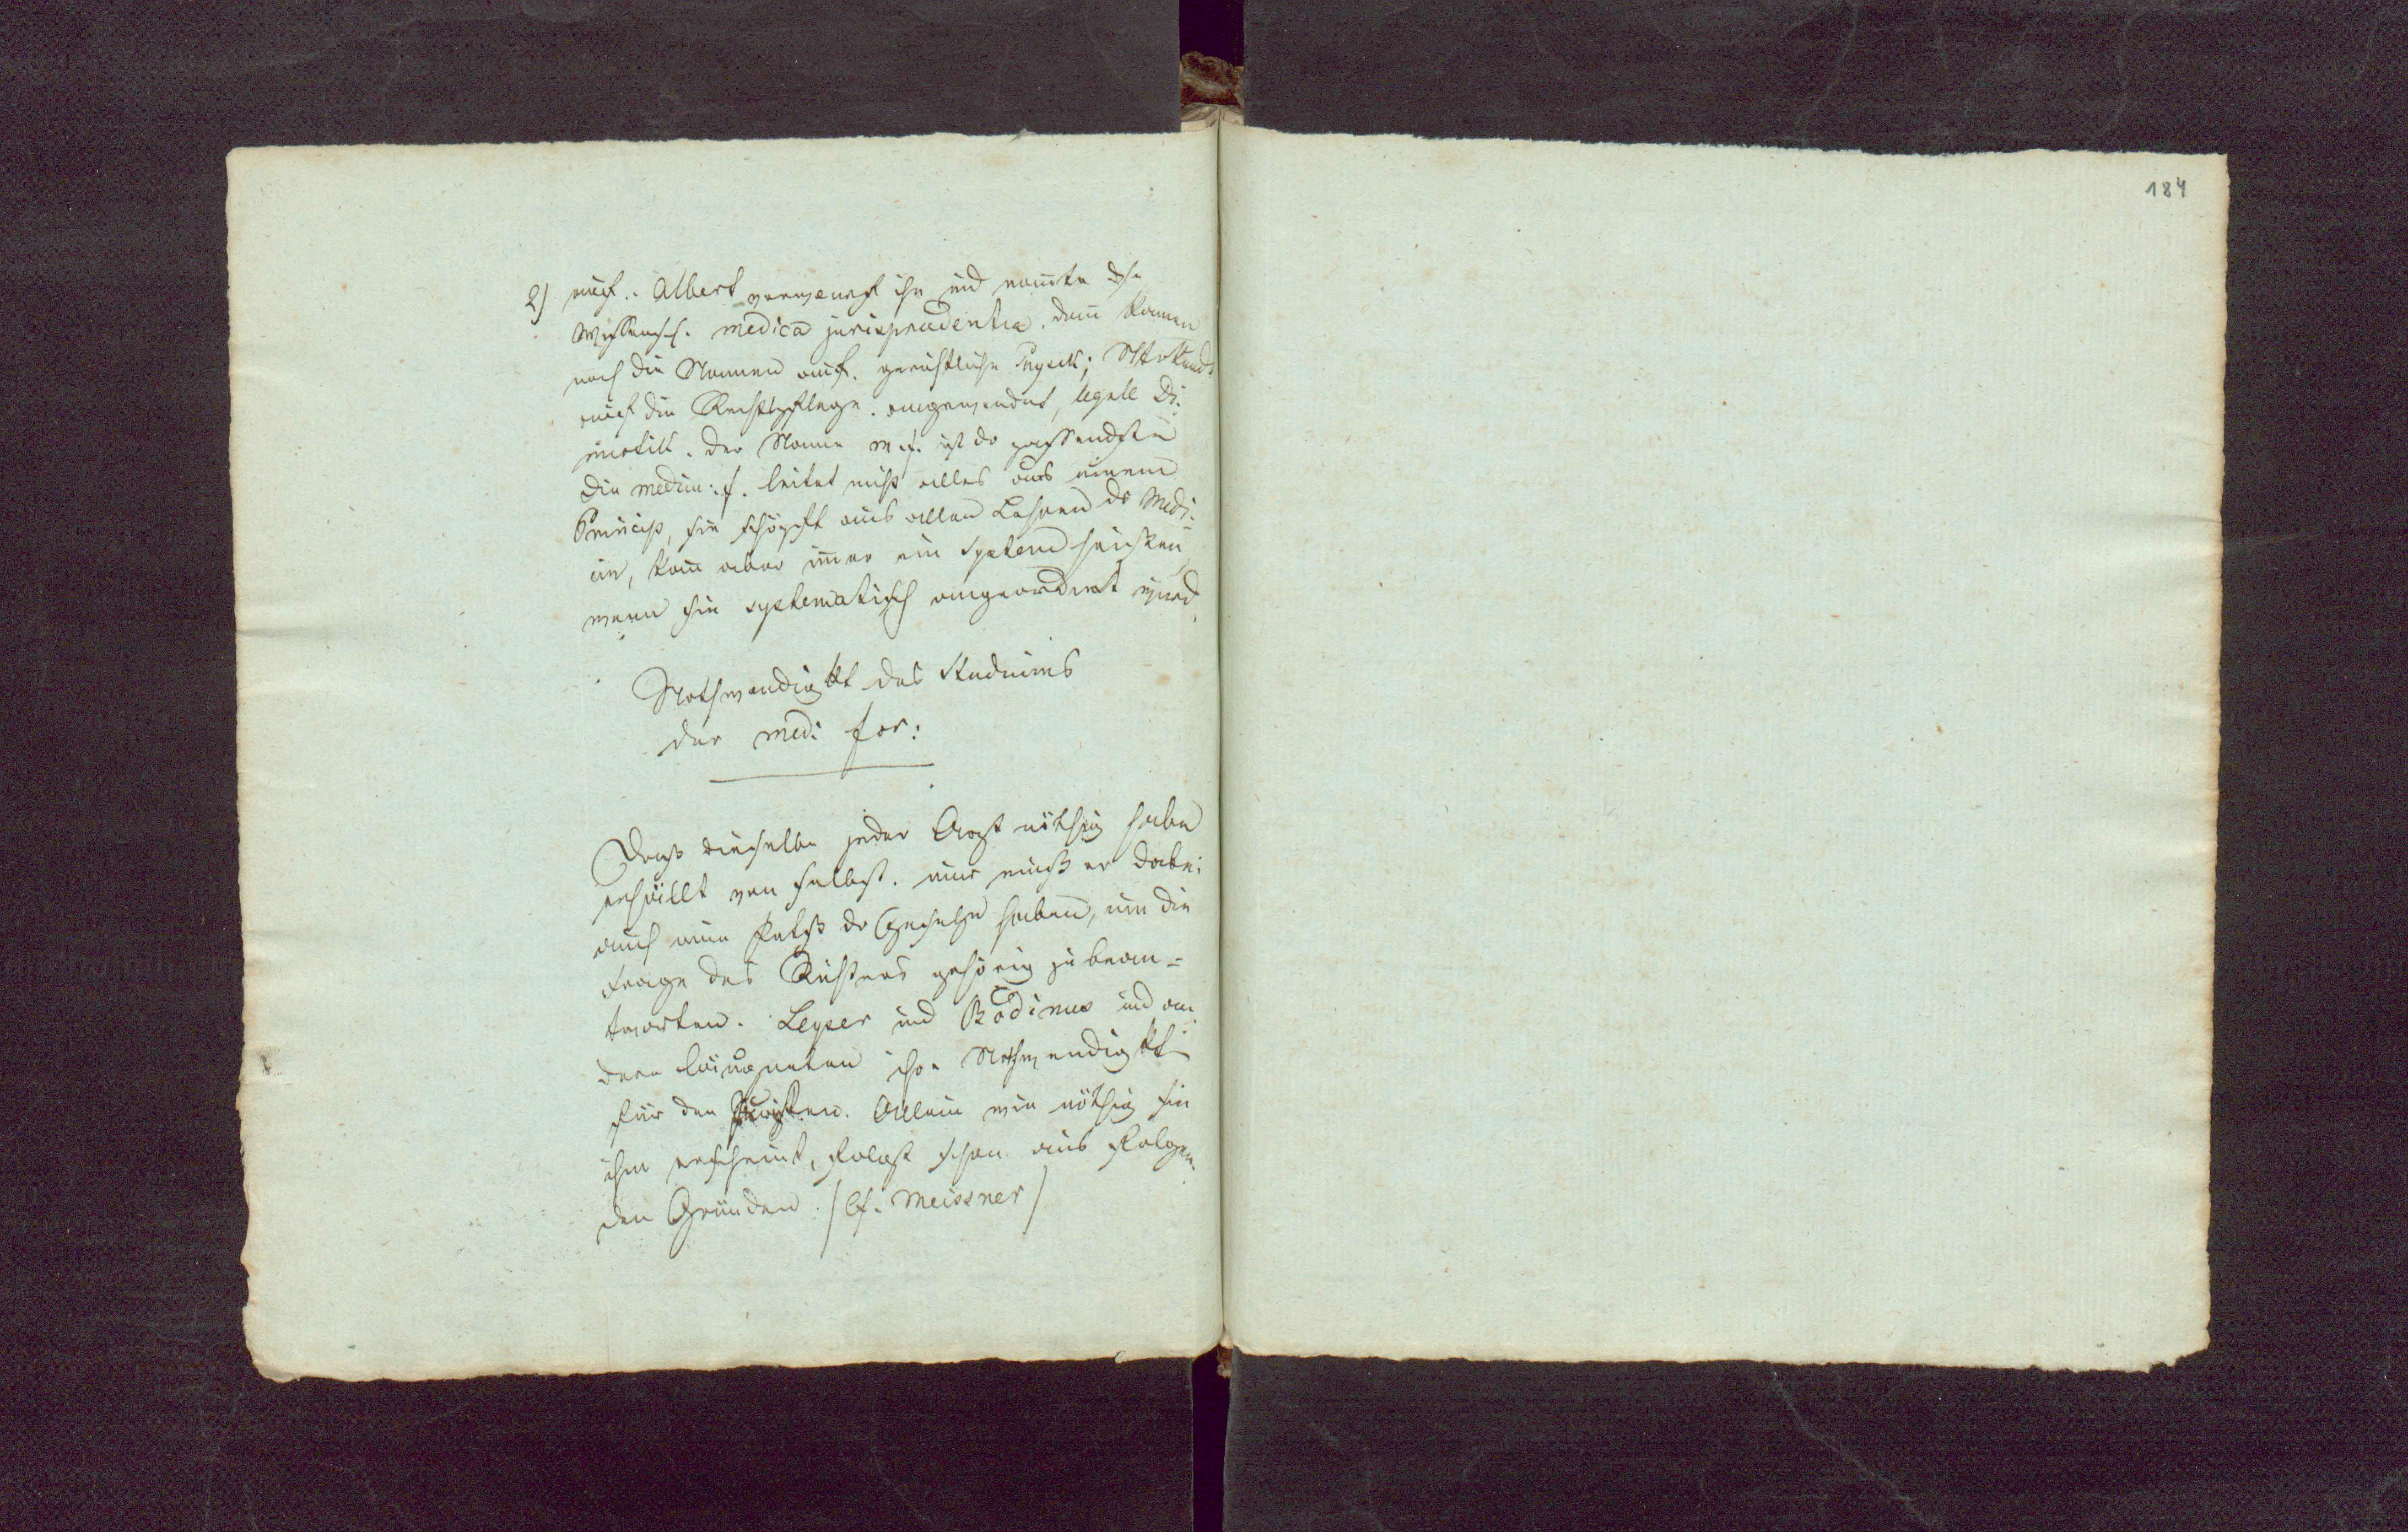 184
2) auf. Albert verwarf ihn und nannte die
Wissensch. medica jurisprudentia. dann kamen
noch die Namen auf. gerichtliche Physik;
auf die Rechtspflege angewendet, legale Di.
ätetik. der Name m. f. ist dr passendste
die medicin: f. leitet nicht alles aus einem
Princip, sie schöpft aus allen Lehren dr Medi¬
cin, kann aber immer ein System heißen
wenn sie systematisch angeordnet wird.
Nothwendigkt des Studiums
der med: for:
Daß dieselbe jeder Arzt nöthig habe
erhellt von selbst. nur muß er dabei
auch eine dr Gesetze haben, um die
Frage des Richters gehörig zu bean=
tworten. Leyser und Bodinus und an
dere läugneten ihre Nothwendigkt
für den Juristen. Allein wie nöthig sie
ihm erscheint, folgt schon aus folgen¬
den Gründen. /Cf. Meissner/